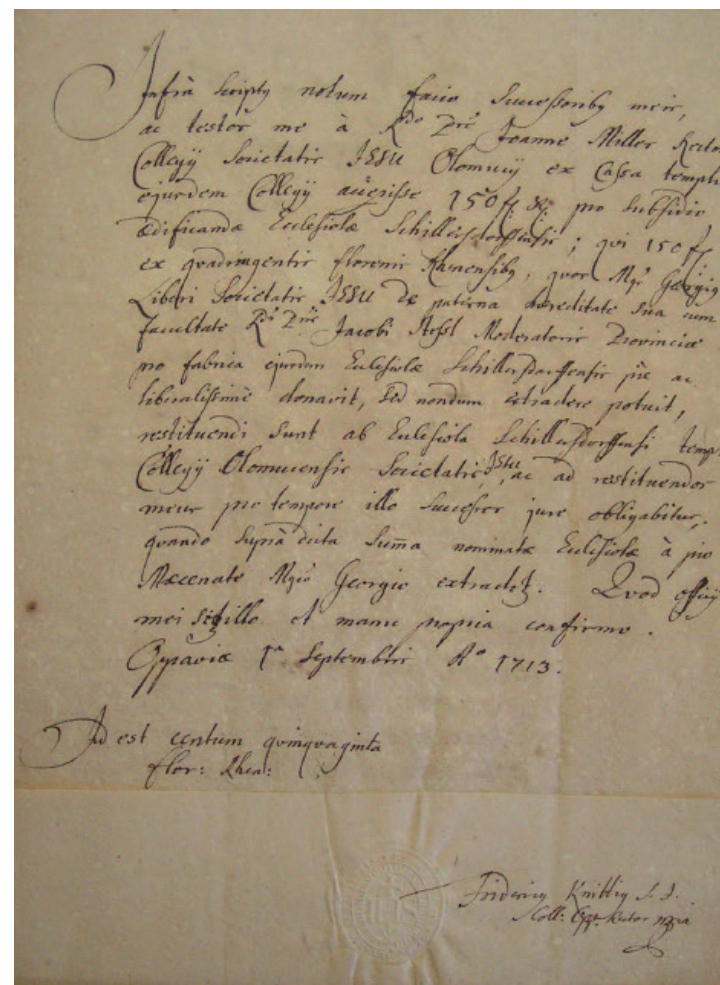 Infrà scripty notum facio Successoriby meis,
ac testor me à Rdo Dno Joanne Miller Recto
Collegij Societatis IESU Olomucij ex Cassa templi
ejusdem Collegij accepisse 150 fl pro subsidio
ædificandæ Ecclesiolæ Schillersdorffensis; qui 150 fl
ex quadringentis florenis Rhenensiby, quos Mgr Georgiy
Liberi Societatis IESU de paterna hæreditate sua cum
facultate Rdi Dni Jacobi Stessl Moderatoris Provinciæ
pro fabrica ejusdem Ecclesiolæ Schillersdorffensis piè ac
liberalissimè donavit, sed nondum extradere potuit,
restituendi sunt ab Ecclesiola Schillersdorffensi templ
Collegij Olomucensis Societatis Iesu, ac ad restituendos
meus pro tempore illo Successor jure obligabitur,
quando suprà dicta Suma nominatæ Ecclesiolæ à pio
Mæcenate Mgro Georgio extradet. Quod officij
mei sigillo et manu propria confirmo.
Oppaviæ 1a Septembris Ao 1713.
Id est centum quinquaginta
flor: Rhen:
IHS
Fridericy Knittly S. J.
Coll: Opp. Rector mpria